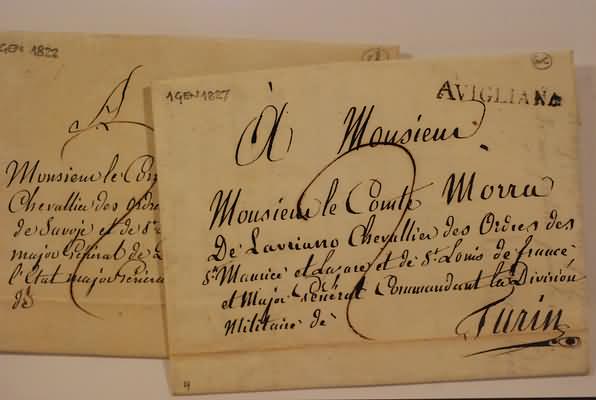 GEN 1822
A
Monsieur le Com
Chevallier des Ordre
de Savoje et de St
major Général de
l'Etat major Général
de
1 GEN 1827
AVIGLIANA
à Monsieur
Monsieur le Comte Morra
De Lavriano Chevallier des Ordres des
St Maurice et Lazare et de St Louis de france
et Major Général Commandant la Division
Militaire de
Turin